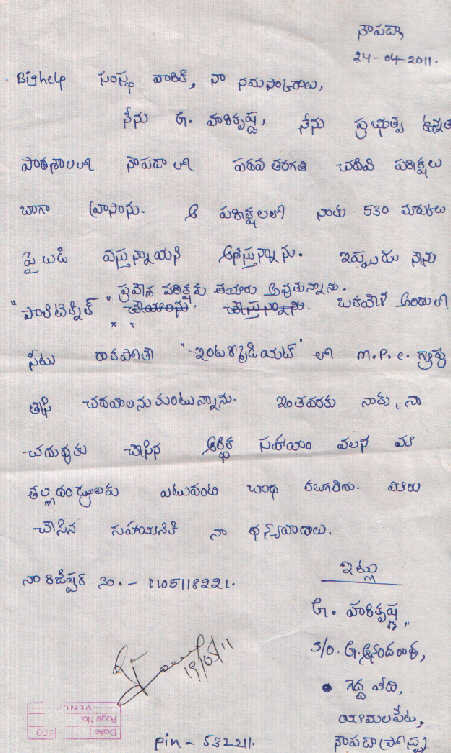 నౌపడా,
24-04-2011.
Bighelp సంస్థ వారికి, నా నమస్కారాలు,
నేను G. హరికృష్ణ, నేను ప్రభుత్వ ఉన్నత
పాఠశాలలో నౌపడా లో పదవ తరగతి చదివి పరీక్షలు
బాగా వ్రాసాను. ఆ పరీక్షలలో నాకు 530 మార్కులు
పై బడి వస్తున్నాయని ఆశిస్తున్నాను. ఇప్పుడు నేను
"పాలిటెక్నిక్" ప్రవేశ పరీక్షకు తయారు అవుతున్నాను. ఒకవేళ అందులో
సీటు రాకపోతే "ఇంటర్మీడియట్" లో M.P.C. గ్రూపు
తీసి చదవాలనుకుంటున్నాను. ఇంతవరకు నాకు, నా
చదువుకు చేసిన ఆర్థిక సహాయం వలన మా
తల్లిదండ్రులకు ఎటువంటి బాధ కలగలేదు. మీరు
చేసిన సహాయానికి నా ధన్యవాదాలు.
నా రిజిస్టర్ నెం. - 1105118221.
ఇట్లు
G. హరికృష్ణ,
S/o. G. ఆనందరావు,
వీధి,
నౌపడా
19/05/11
Date
Page No.
Pin - 532211.